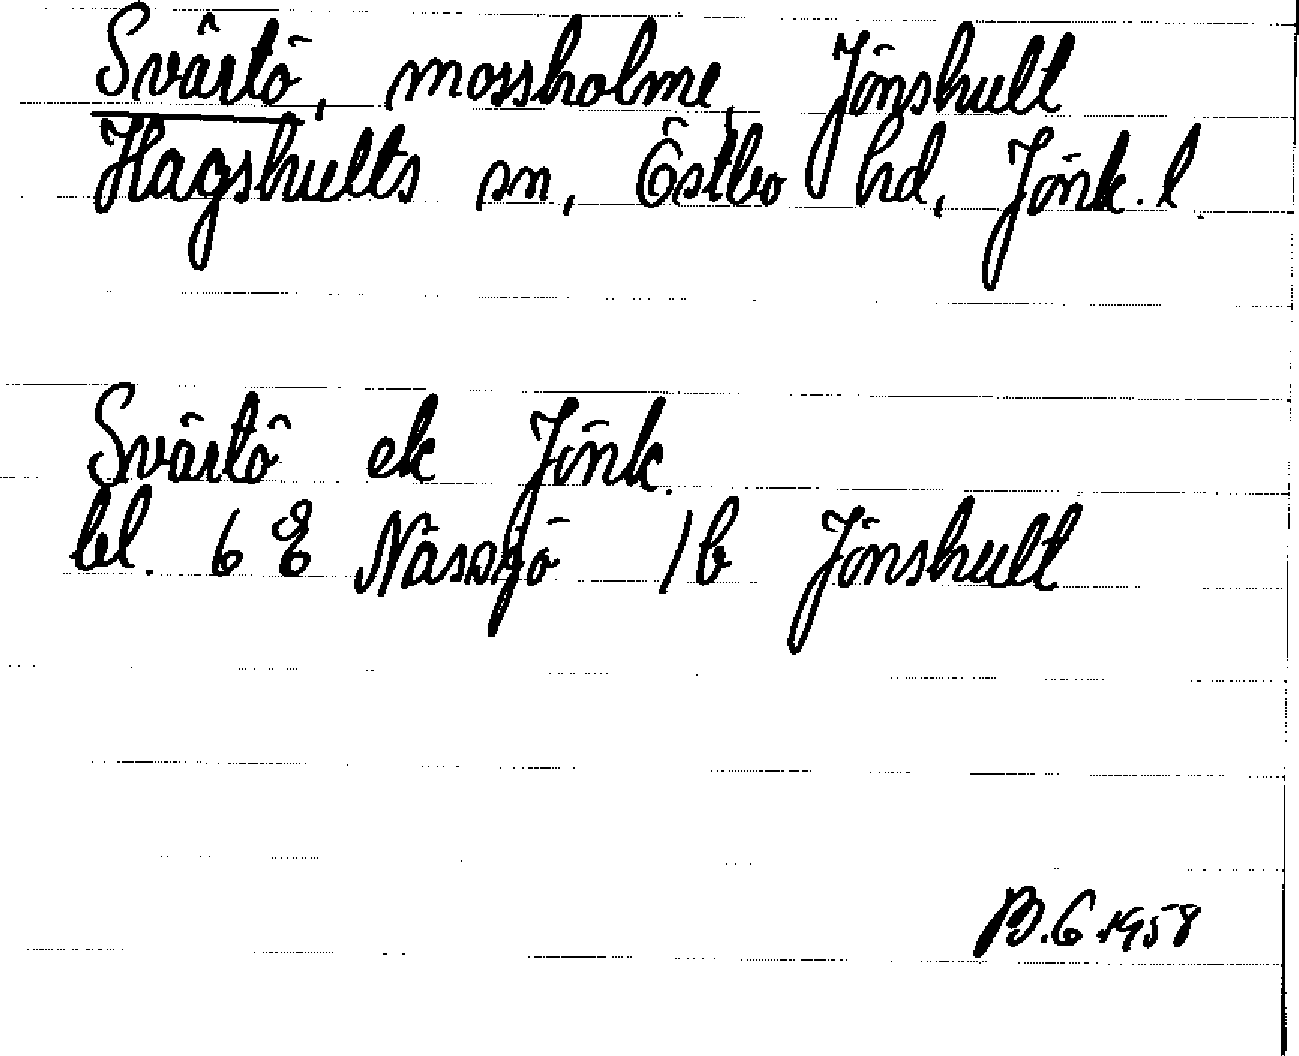 Svärtö, mossholme, Jönshult
Hagshults sn, Östbo hd, Jönk. l.
Svärtö ek Jönk.
bl. 6 E Nässjö 1b Jönshult
B.G.1958